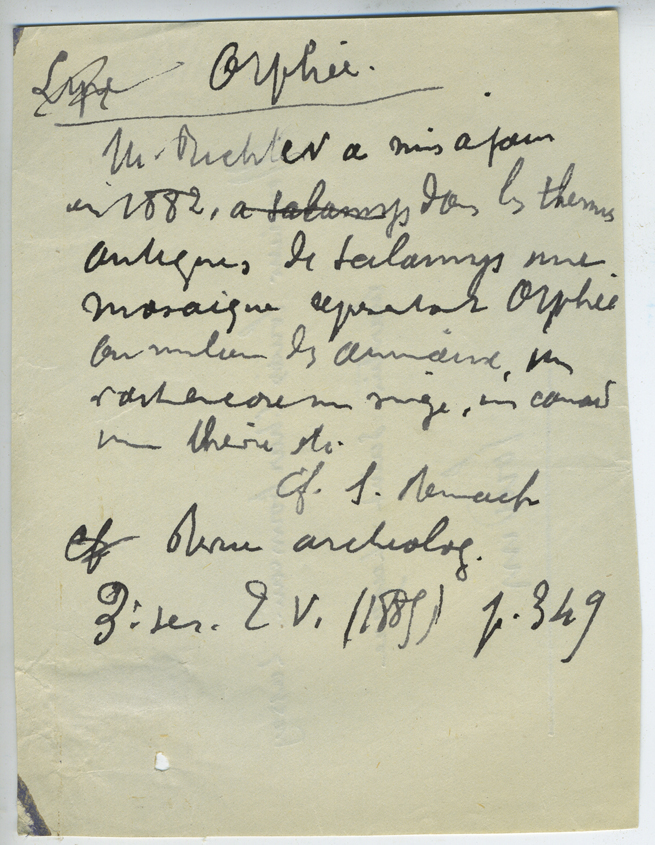 Orphée.
M. Richter a mis a jour
en 1882, a Salamys dans les thermes
antiques de Salamys une
mosaique representant Orphée
au milieu des animaux, on
voit encore un singe, un canard
une etc.
Cf. S. Reinach
cf Revue archeolog.
3e ser. T. V. (1885) p. 349